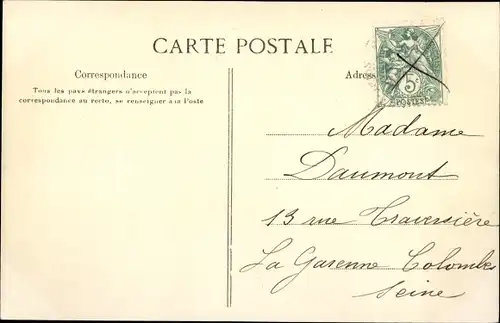 CARTE POSTALE
Correspondance
Tous les pays étrangers n'acceptent pas la
correspondance au recto, se renseigner à la Poste
Adres
5c
POSTES
Madame
Daumont
13 rue Traversière
La Garenne Colombe
Seine